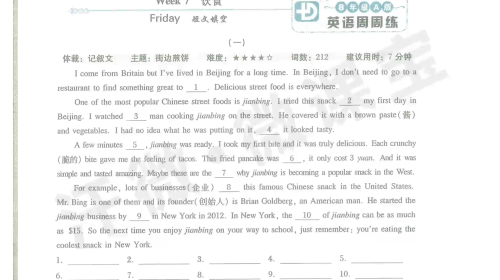 Week 7 饮食
Friday 短文填空
8年级A版
英语周周练
（一）
体裁：记叙文 主题：街边煎饼 难度：★★★★☆ 词数：212 建议用时：7 分钟
I come from Britain but I've lived in Beijing for a long time. In Beijing, I don't need to go to a
restaurant to find something great to 1 . Delicious street food is everywhere.
One of the most popular Chinese street foods is jianbing. I tried this snack 2 my first day in
Beijing. I watched 3 man cooking jianbing on the street. He covered it with a brown paste（酱）
and vegetables. I had no idea what he was putting on it, 4 it looked tasty.
A few minutes 5 , jianbing was ready. I took my first bite and it was truly delicious. Each crunchy
（脆的）bite gave me the feeling of tacos. This fried pancake was 6 , it only cost 3 yuan. And it was
simple and tasted amazing. Maybe these are the 7 why jianbing is becoming a popular snack in the West.
For example, lots of businesses（企业） 8 this famous Chinese snack in the United States.
Mr. Bing is one of them and its founder（创始人）is Brian Goldberg, an American man. He started the
jianbing business by 9 in New York in 2012. In New York, the 10 of jianbing can be as much
as $15. So the next time you enjoy jianbing on your way to school, just remember: you're eating the
coolest snack in New York.
1. 2. 3. 4. 5.
6. 7. 8. 9. 10.